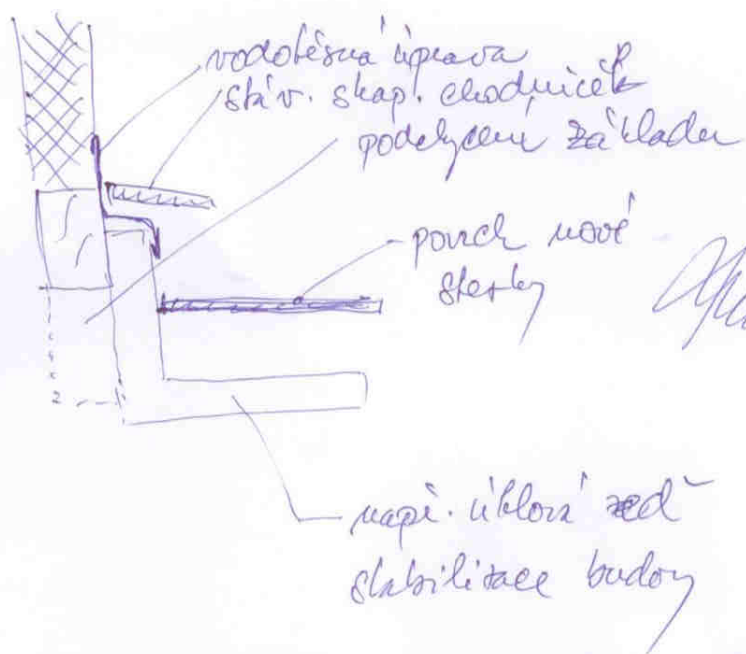 vodotěsná úprava
stáv. okap. chodníček
podchycení základu
povrch nové
stezky
např. úhlová zeď
stabilizace budovy